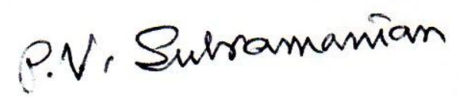 P.V. Subramanian